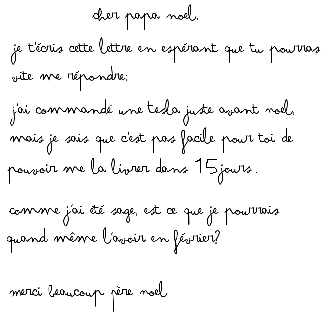 cher papa noel.
je t'écris cette lettre en espérant que tu pourras
vite me répondre;
j'ai commandé une tesla juste avant noel,
mais je sais que c'est pas facile pour toi de
pouvoir me la livrer dans 15 jours.
comme j'ai été sage, est ce que je pourrais
quand même l'avoir en février?
merci beaucoup père noel